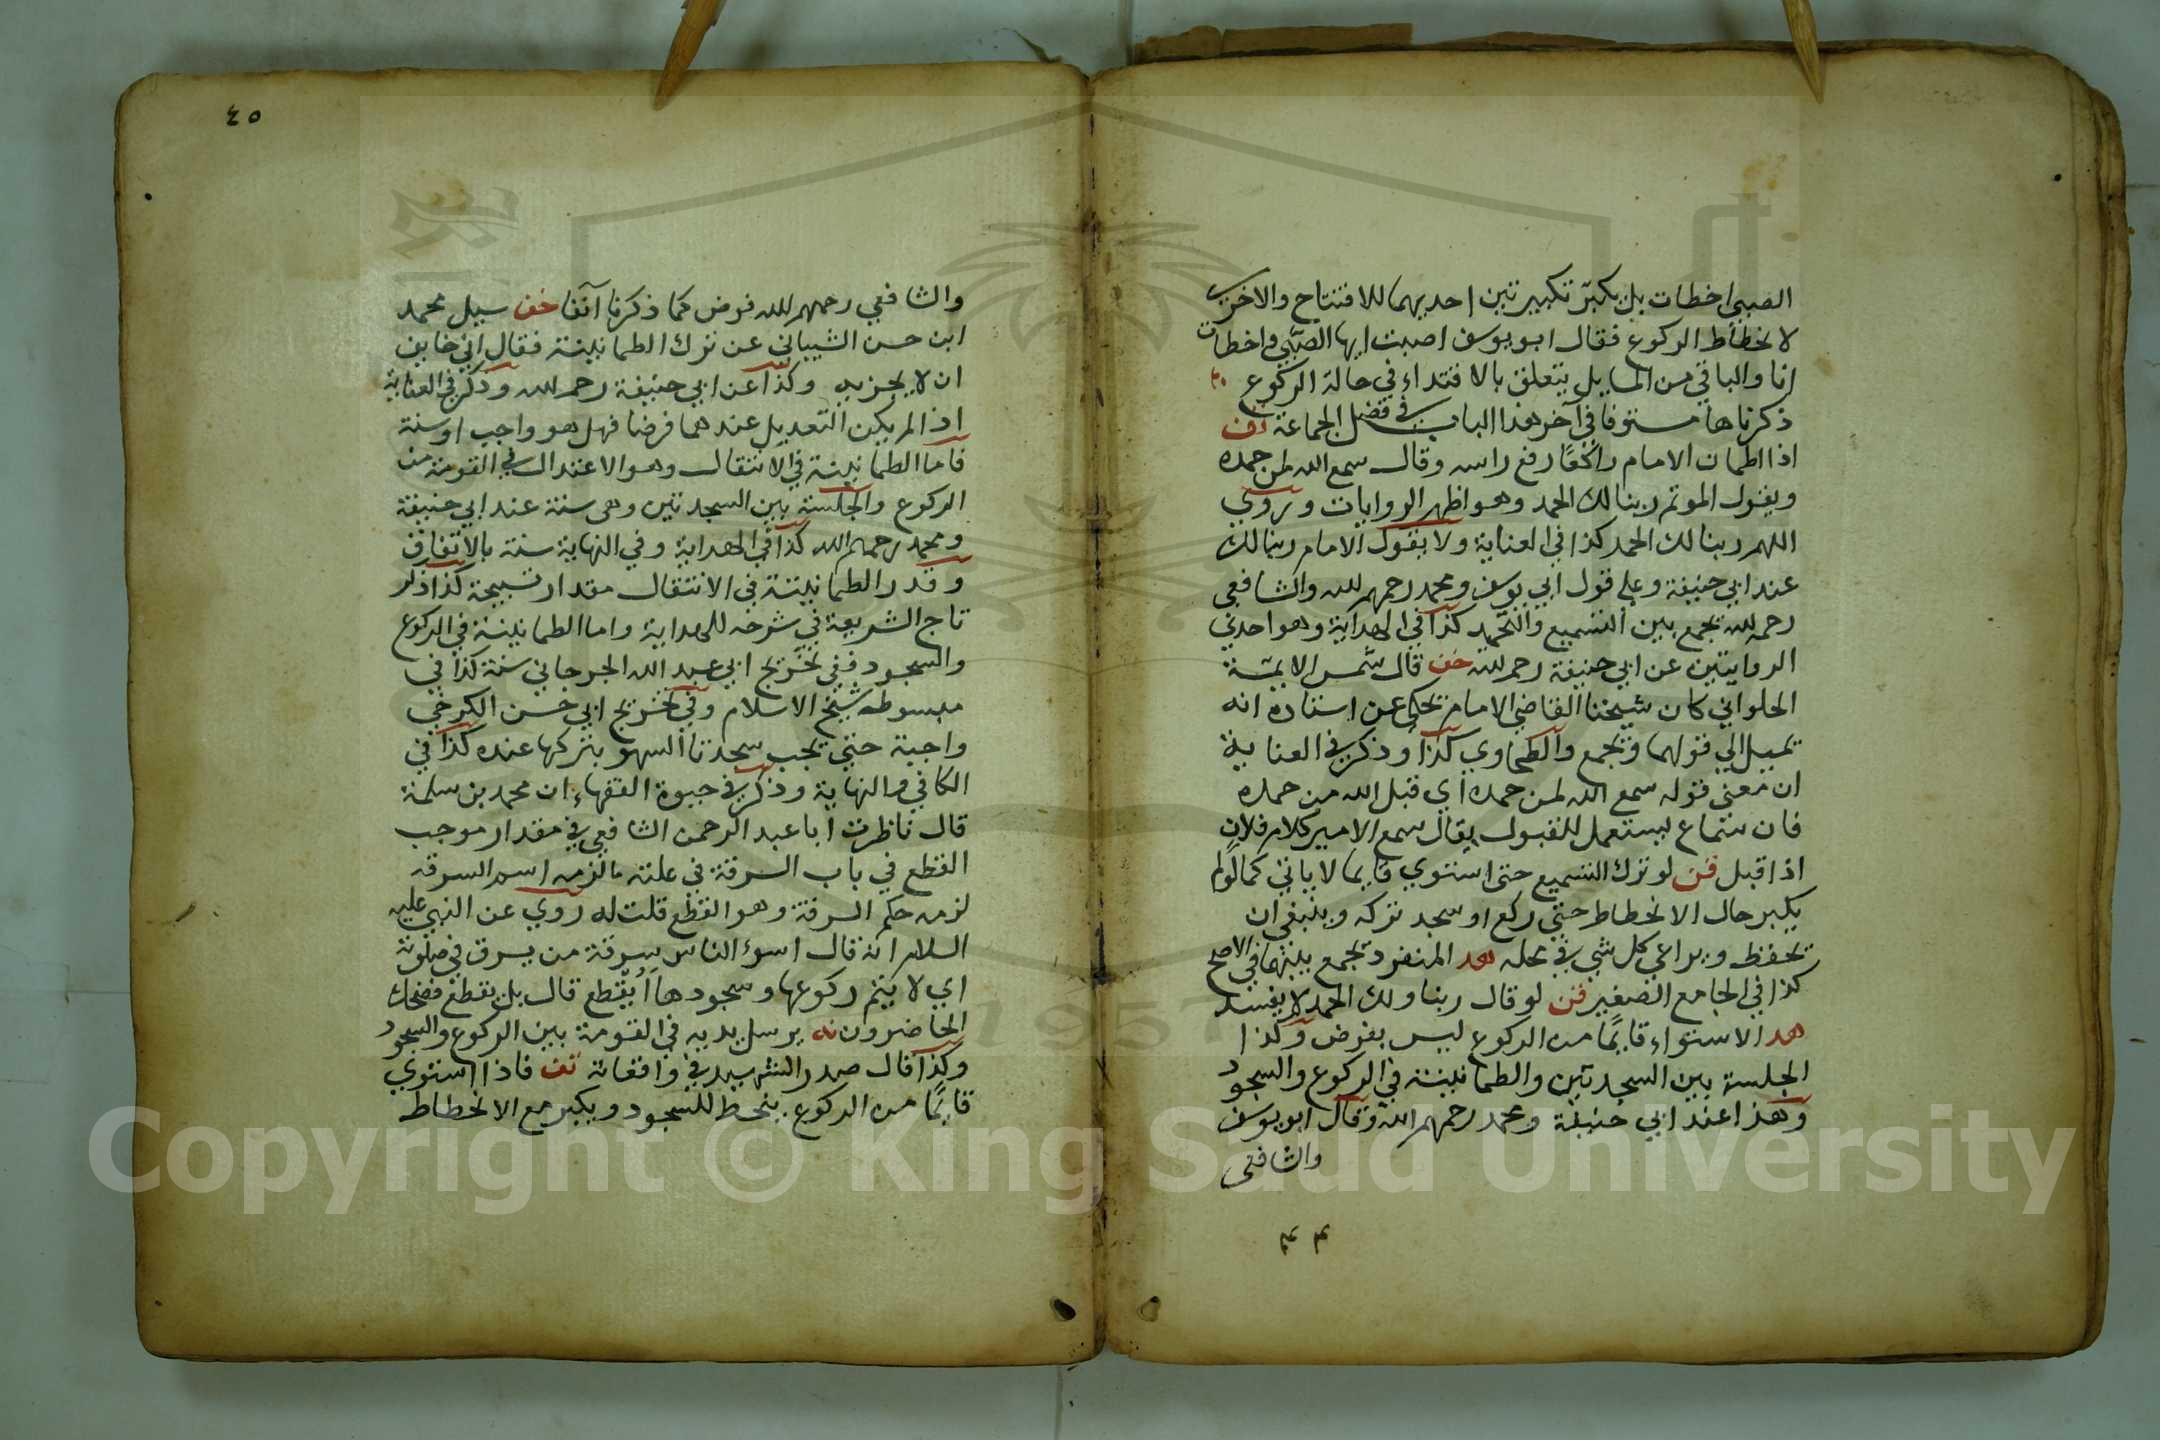 الصبي اخطات بل يكبر تكبيرتين احديهما للافتتاح والاخرى
لانحطاط الركوع فقال ابو يوسف اصبت ايها الصبي واخطات
انا والباقي من المسايل يتعلق بالاقتداء في حالة الركوع
ذكرناها مستوفا في آخر هذا الباب في فضل الجماعة
اذا اطمان الامام راكعا رفع راسه وقال سمع الله لمن حمده
ويقول الموتم ربنا لك الحمد وهو اظهر الروايات وروي
اللهم ربنا لك الحمد كذا في العناية ولا يقول الامام ربنا لك
عند ابي حنيفة وعلى قول ابي يوسف ومحمد رحمهم الله والشافعي
رحمه الله يجمع بين التسميع والتحميد كذا في الهداية وهو احدي
الروايتين عن ابي حنيفة رحمه الله خف قال شمس الايمة
الحلواني كان شيخنا القاضي الامام يحكي عن استاده انه
يميل الي قولهما ويجمع والطحاوي كذا وذكر في العناية
ان معني قوله سمع الله لمن حمده اي قبل الله من حمده
فان سماع يستعمل للقبول يقال سمع الامير كلام فلان
اذا قبل قن لو ترك التسميع حتى استوي قايما لا ياتي كما لو لم
يكبر حال الانحطاط حتي ركع او سجد تركه وينبغي ان
يحفظ ويراعي كل شي في محله هد المنفرد يجمع بينهما في الاصح
كذا في الجامع الصغير قن لو قال ربنا ولك الحمد لا يفسد
هد الاستواء قايما من الركوع ليس بفرض وكذا
الجلسة بين السجدتين والطمانينة في الركوع والسجود
وهذا عند ابي حنيفة ومحمد رحمهم الله وقال ابو يوسف
والشافعي
٤٥
والشافعي رحمهم الله فرض كما ذكرنا آنفا خف سيل محمد
ابن حسن الشيباني عن ترك الطمانينة فقال اني خايف
ان لا يجزيه وكذا عن ابي حنيفة رحمه الله وذكر في العناية
اذا لم يكن التعديل عندهما فرضا فهل هو واجب او سنة
فاما الطمانينة في الانتقال وهو الاعتدال في القومة من
الركوع والجلسة بين السجدتين وهي سنة عند ابي حنيفة
ومحمد رحمهم الله كذا في الهداية وفي النهاية سنة بالاتفاق
وقدر الطمانينة في الانتقال مقدار تسبيحة كذا ذكر
تاج الشريعة في شرحه للهداية واما الطمانينة في الركوع
والسجود ففي تخريج ابي عبد الله الجرجاني سنة كذا في
مبسوطه شيخ الاسلام وفي تخريج ابي حسن الكرخي
واجبة حتي تجب سجدتا السهو بتركها عنده كذا في
الكافي والنهاية وذكر في حيوة الفقهاء ان محمد بن سلمة
قال ناظرت ابا عبد الرحمن الشافعي في مقدار موجب
القطع في باب السرقة في علته ما لزمه اسم السرقه
لزمه حكم السرقة وهو القطع قلت له روي عن النبي عليه
السلام انه قال اسوء الناس سرقة من يسرق في صلوته
اي لا يتم ركوعها وسجودها أيقطع قال بل يقطع فضحك
الحاضرون يرسل يديه في القومة بين الركوع والسجود
وكذا قال صدر الشهيد في واقعاته تف فاذا استوي
قايما من الركوع ينحط للسجود ويكبر مع الانحطاط
Copyright © King Saud University
1957